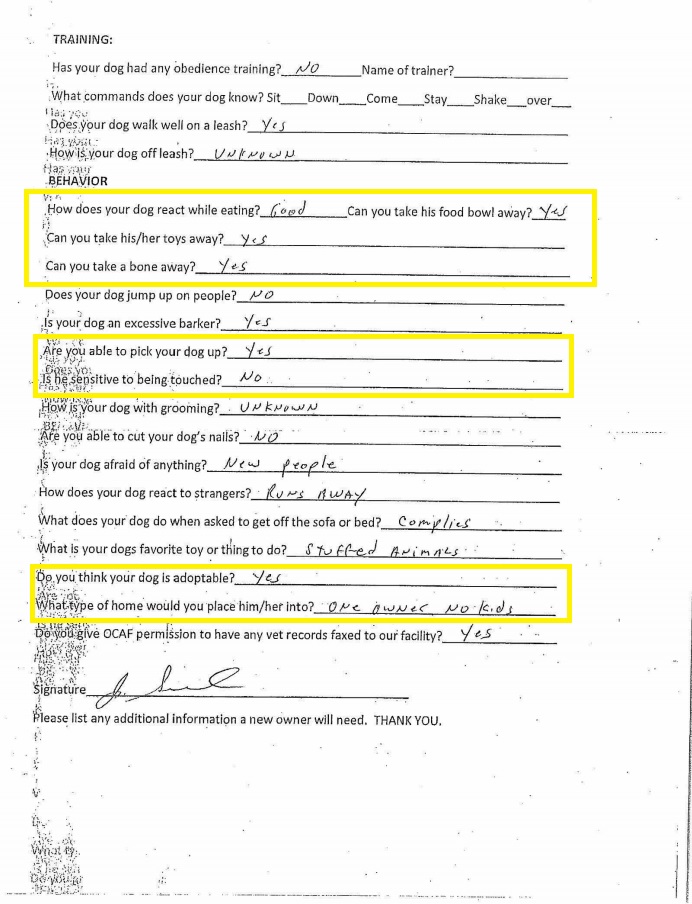 TRAINING:
Has your dog had any obedience training? NO Name of trainer?
What commands does your dog know? Sit Down Come Stay Shake over
Has you
Does your dog walk well on a leash? Yes
How is your dog off leash? UNKNOWN
Has your
BEHAVIOR
How does your dog react while eating? Good Can you take his food bowl away? Yes
Can you take his/her toys away? Yes
Can you take a bone away? Yes
Does your dog jump up on people? NO
Is your dog an excessive barker? Yes
Are you able to pick your dog up? Yes
Is he sensitive to being touched? No
How is your dog with grooming? UNKNOWN
Are you able to cut your dog's nails? NO
Is your dog afraid of anything? New people
How does your dog react to strangers? RUNS AWAY
What does your dog do when asked to get off the sofa or bed? Complies
What is your dogs favorite toy or thing to do? Stuffed Animals
Do you think your dog is adoptable? Yes
What type of home would you place him/her into? ONE OWNER NO KIDS
Do you give OCAF permission to have any vet records faxed to our facility? Yes
Signature
Please list any additional information a new owner will need. THANK YOU.
What ty
Is he sen
Do you gi